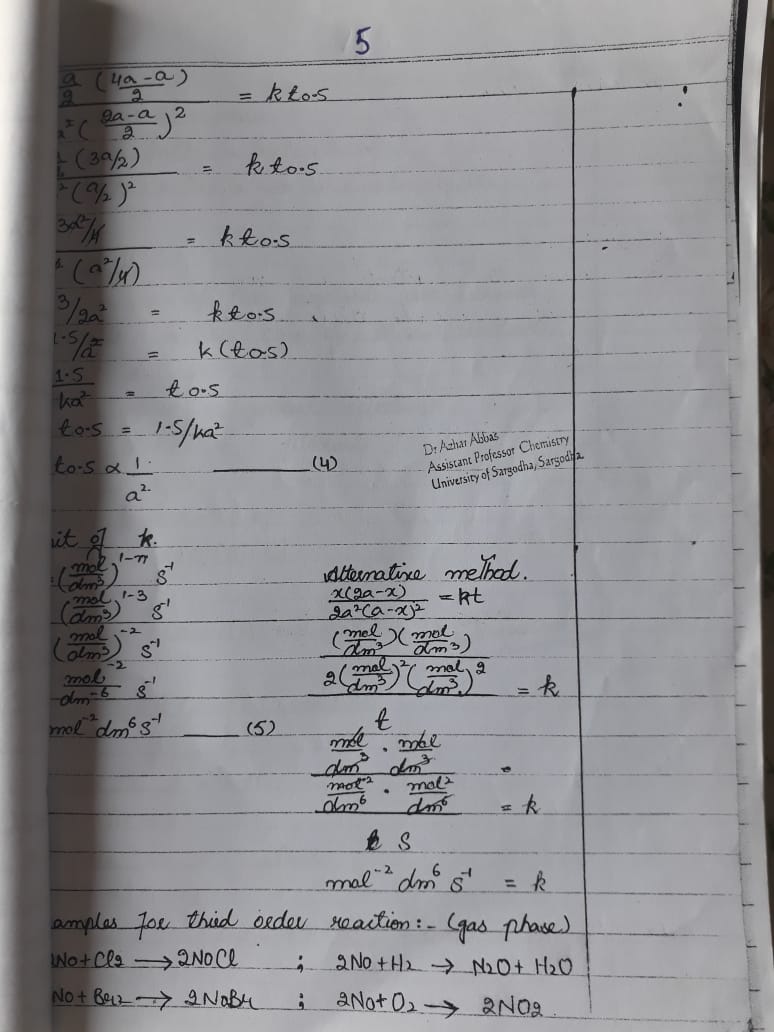 5
a/2 (4a-a)/2 = k t0.5
a²((2a-a)/2)²
(3a/2) = k t0.5
²(a/2)²
3a²/4 = k t0.5
(a²/4)
3/2a² = k t0.5
1.5/a² = k(t0.5)
1.5/ka² = t0.5
t0.5 = 1.5/ka²
t0.5 ∝ 1/a² (4)
Dr Azhar Abbas
Assistant Professor Chemistry
University of Sargodha, Sargodha
it of k.
(mol/dm³)^1-n s⁻¹
(mol/dm³)^1-3 s⁻¹
(mol/dm³)⁻² s⁻¹
mol⁻²/dm⁻⁶ s⁻¹
mol⁻² dm⁶ s⁻¹ (5)
Alternative method.
x(2a-x)/2a²(a-x)² = kt
(mol/dm³)(mol/dm³)
2(mol/dm³)²(mol/dm³)² = k
t
mol/dm³ . mol/dm³
mol²/dm⁶ . mol²/dm⁶ = k
s
mol⁻² dm⁶ s⁻¹ = k
amples for third order reaction:- (gas phase)
2No+Cl2 → 2NOCl ; 2No+H2 → N2O + H2O
No+Br2 → 2NoBr ; 2No+O2 → 2NO2